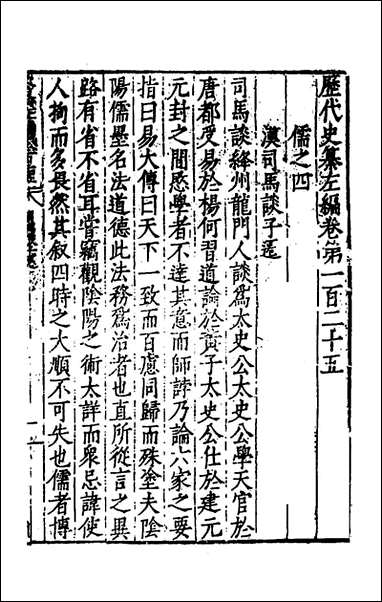 歷代史纂左編卷第一百二十五
儒之四
漢司馬談子遷
司馬談絳州龍門人談爲太史公太史公學天官於
唐都受易於楊何習道論於黃子太史公仕於建元
元封之間愍學者不達其意而師誖乃論六家之要
指曰易大傳曰天下一致而百慮同歸而殊塗夫陰
陽儒墨名法道德此法務爲治者也直所從言之異
路有省不省耳嘗竊觀陰陽之術太詳而衆忌諱使
人拘而多畏然其叙四時之大順不可失也儒者博